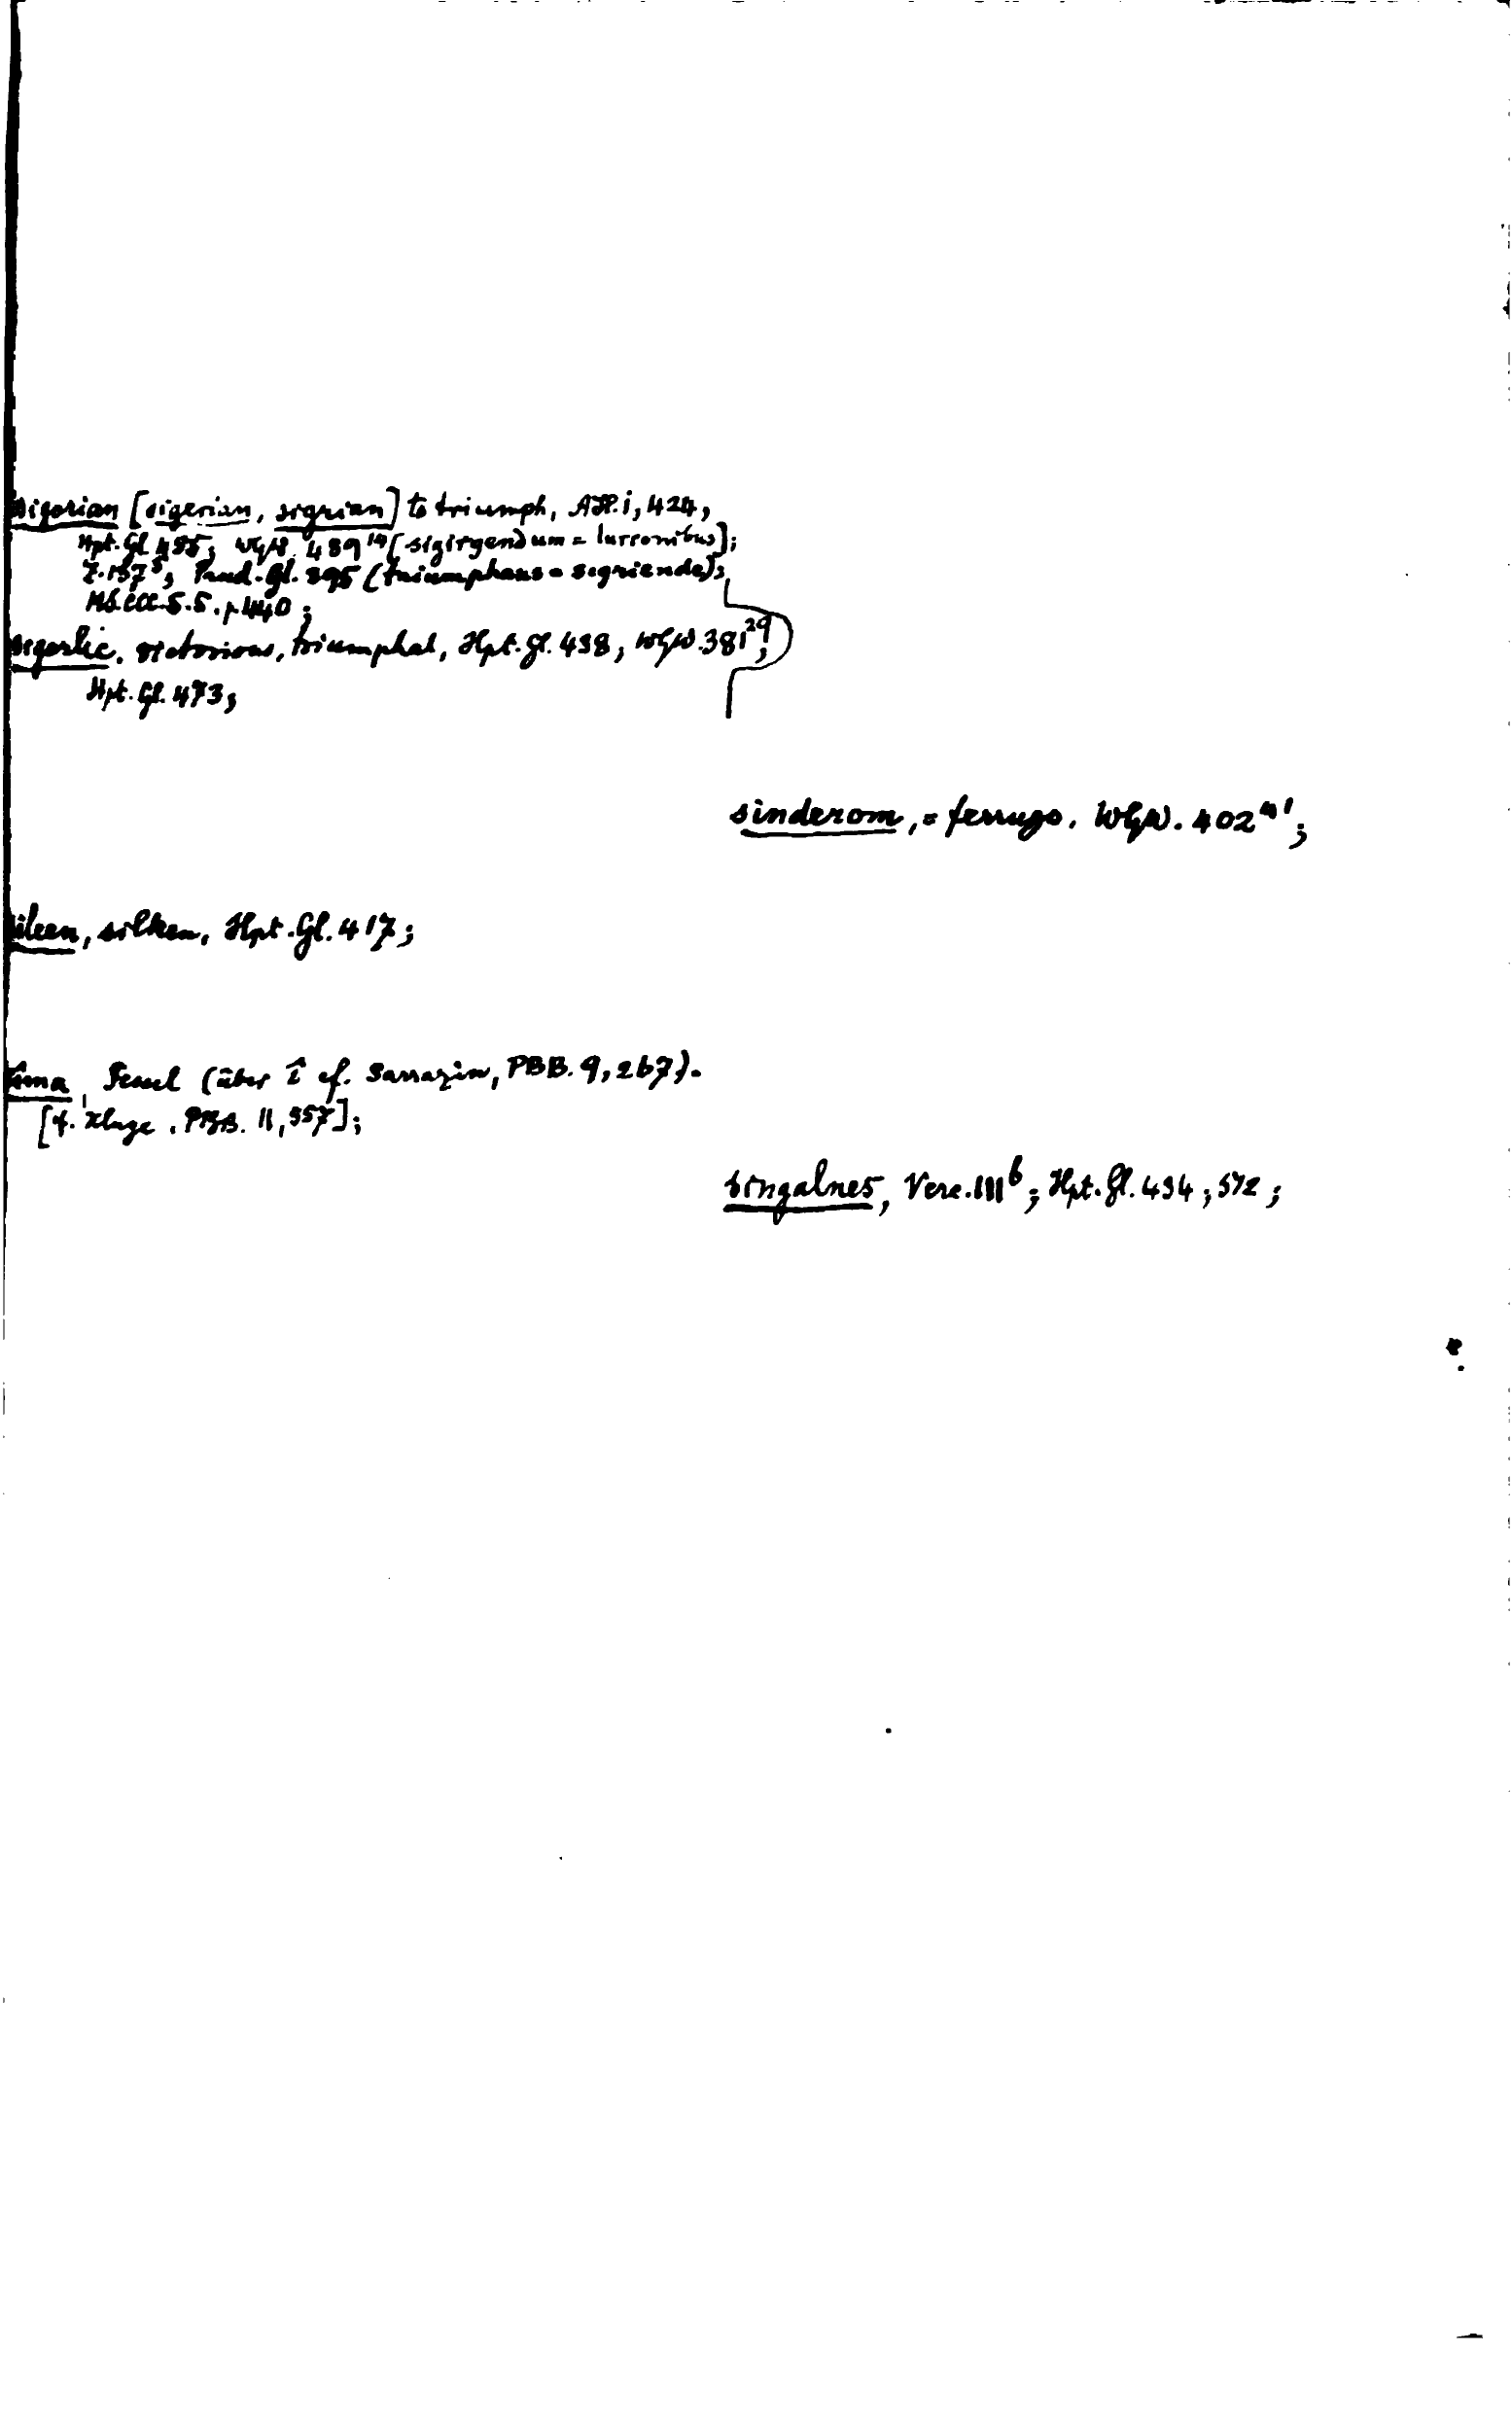 sigorian [sigerian, sigrian] to triumph, ÆH. i, 424,
Hpt. Gl. 435; WgW. 489¹⁴ [sigirgendum = lurconibus];
Z. 157⁵; Prud. Gl. 395 (triumphans = sigriende);
MS. CCC. S.5. p. 440;
sigorlic, victorious, triumphal, Hpt. Gl. 438; WgW. 381²⁹;
Hpt. Gl. 473;
sinderom, = ferrugo. WgW. 402⁴¹;
silcen, silken, Hpt. Gl. 417;
sîma, Seucl (über î cf. Sarrazin, PBB. 9, 267).
[cf. Kluge, PBB. 11, 557];
singalnes, Verc. 111ᵇ; Hpt. Gl. 434; 512;